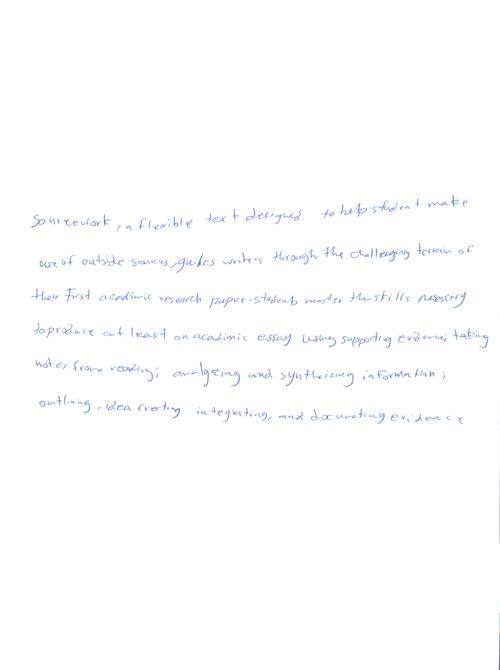 Sourcework, a flexible text designed to help student make
use of outside sources, guides writers through the challenging terrain of
their First acadimic research paper. students master the skills necessry
to produce at least on acadimic essay using supporting evidence; taking
notes from reading; analyzing and synthizing information;
outlining, idea crerting integrating, and documating evidence